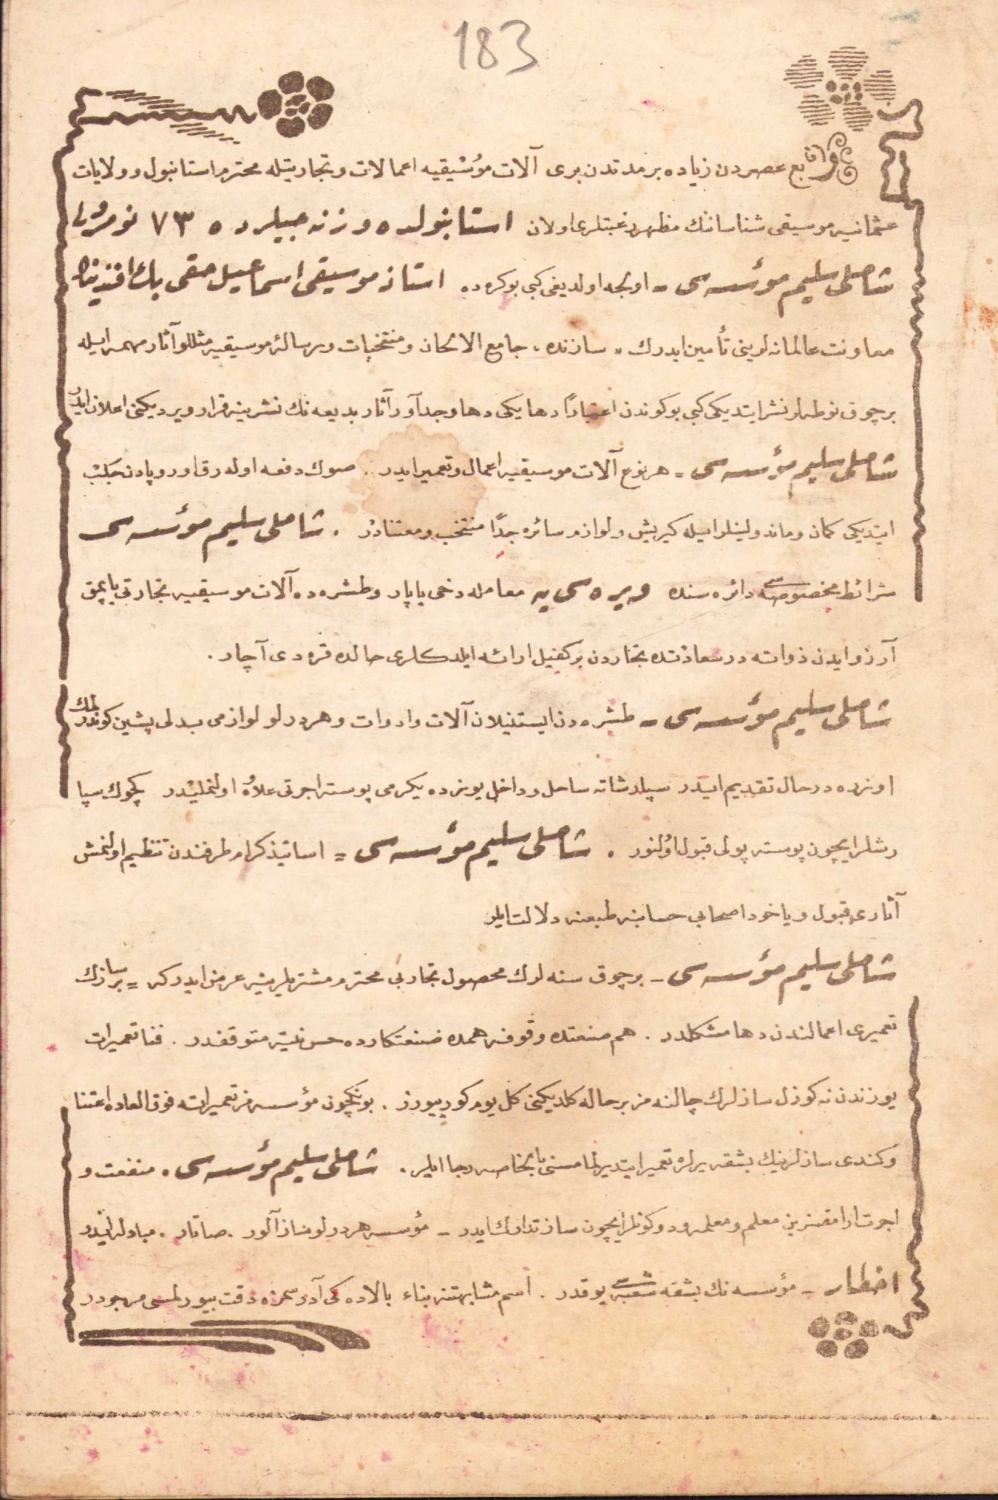 183
ربع عصردن زیاده بر مدتدن بری آلات موسیقیه اعمالات و تجاریتله محترم استانبول و ولایات
عثمانیه موسیقی شناسانك مظهر رغبتلری اولان استانبولده وزنه جیلرده ٧٣ نومرولی
شاملی سلیم مؤسسه سی ـ اولجه اولدیغی كبی بو كره ده استاذ موسیقی اسماعیل حقی بك افندینك
معاونت عالمانه لرینی تأمین ایدرك ، سازنده ، جامع الالحان و منتخبات و رسالهٔ موسیقیه مثللو آثار مهمه ایله
بر چوق نوطه لر نشر ایتدیكی كبی بو كوندن اعتبارًا دها یكی دها وجدآور آثار بدیعه نك نشرینه قرار ویردیكنی اعلان ایدر
شاملی سلیم مؤسسه سی ـ هر نوع آلات موسیقیه اعمال و تعمیر ایدر . صوك دفعه اوله رق اوروپادن جلب
ایتدیكی كمان و ماندولینلر ایله كیریش و لوازم سائره جدًا منتخب و معتنادر . شاملی سلیم مؤسسه سی
شرائط مخصوصه سی دائره سنده ویره سی یه معامله دخی یاپار و طشره ده آلات موسیقیه تجارتی یاپمق
آرزو ایدن ذواته درسعادتده تجاردن بر كفیل ارائه ایلدكلری حالده قره دی آچار .
شاملی سلیم مؤسسه سی ـ طشره دن ایستنیلان آلات و ادوات و هر درلو لوازمی بدلی پشین كوندرلمك
اوزره درحال تقدیم ایدر سپارشاته ساحل و داخل یوزده یكرمی پوسته اجرتی علاوه اولنملیدر كچوك سپا
رشلر ایچون پوسته پولی قبول اولنور . شاملی سلیم مؤسسه سی = اساتیذ كرام طرفندن تنظیم اولنمش
آثاری قبول و یاخود اصحابی حسابنه طبعنه دلالت ایلر
شاملی سلیم مؤسسه سی ـ بر چوق سنه لرك محصول تجاربی محترم مشتریلرینه عرض ایدر كه = بر سازك
تعمیری اعمالندن دها مشكلدر . هم صنعتده وقوفه همده صنعتكارده حسن نیته متوقفدر . فنا تعمیرات
یوزندن نه كوزل سازلرك چالنه مز بر حاله كلدیكنی كل یوم كورییورز . بونكچون مؤسسه مز تعمیراته فوق العاده اعتنا
و كندی سازلرینك بشقه یرلره تعمیر ایتدیرلمامسنی بالخاصه رجا ایلر . شاملی سلیم مؤسسه سی . منفعت و
اجرت آرامقسزین معلم و معلمه و دوكونلر ایچون ساز تدارك ایدر ـ مؤسسه هر درلو ساز آلور . صاتار . مبادله ایدر
اخطار ـ مؤسسه نك بشقه شعبه سی یوقدر . اسم مشابهتنه بناء بالاده كی آدرسمزه دقت بیورلمسی مرجودر